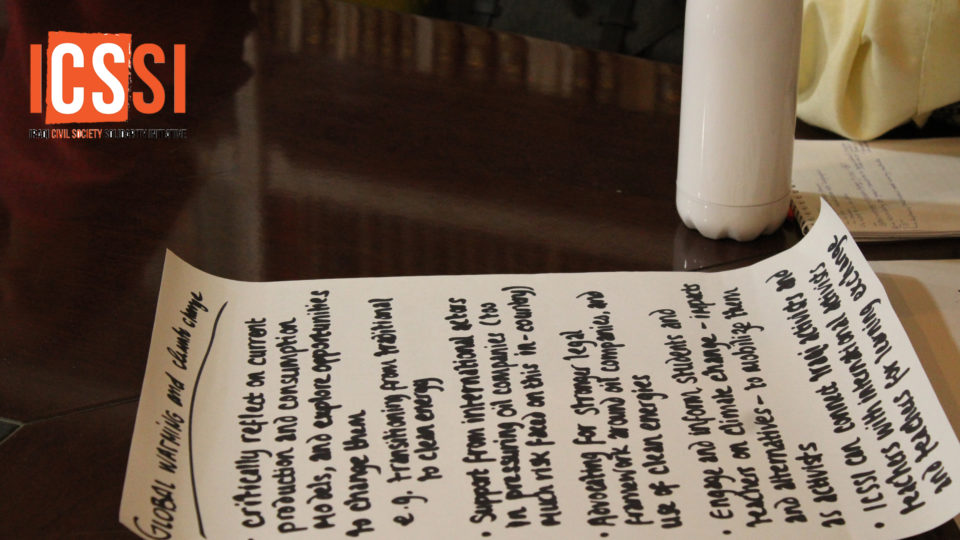 ICSSI
IRAQI CIVIL SOCIETY SOLIDARITY INITIATIVE
GLOBAL WARMING and climate change
• critically reflect on current
production and consumption
models, and explore opportunities
to change them
e.g. transitioning from traditional
to clean energy
• Support from international actors
in pressuring oil companies (to
much risk faced on this in-country)
• Advocating for stronger legal
framework around oil companies, and
use of clean energies
• Engage and inform students and
teachers on climate change - impacts
and alternatives - to mobilize them
as activists
• ICSSI can connect Iraqi activists and
teachers with international activists
and teachers for learning exchange